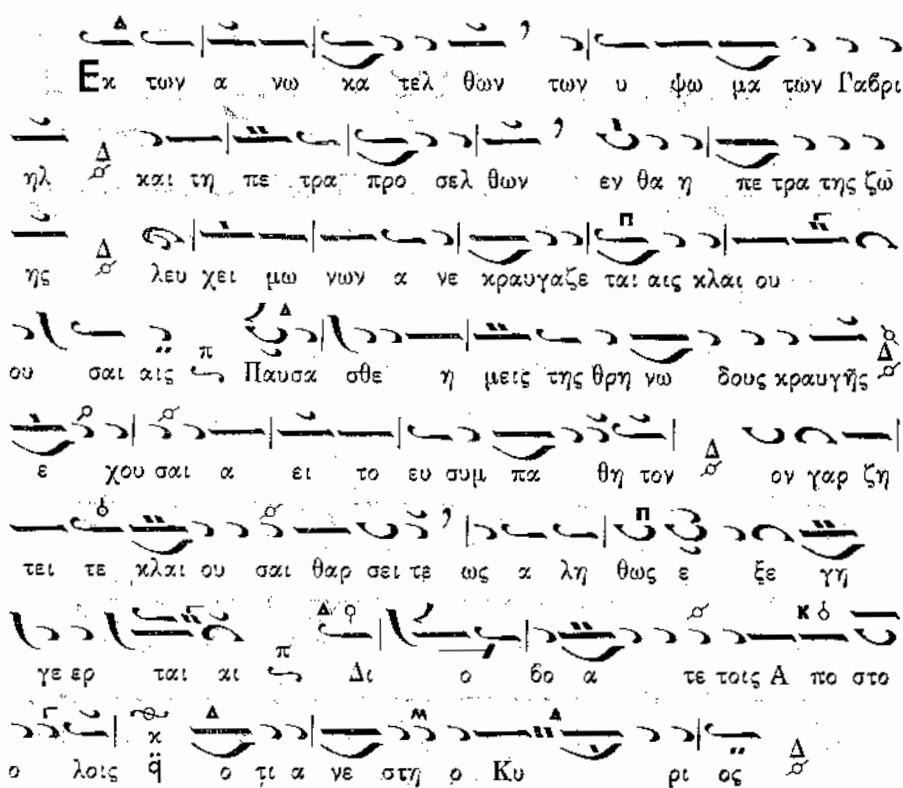 Εκ των α νω κα τελ θων των υ ψω μα των Γαβρι
ηλ Δ και τη πε τρα προ σελ θων εν θα η πε τρα της ζω
ης Δ λευ χει μω νων α νε κραυγαζε ται αις κλαι ου
ου σαι αις π Παυσα σθε η μεις της θρη νω δους κραυγης Δ
ε χου σαι α ει το ευ συμ πα θη τον Δ ον γαρ ζη
τει τε κλαι ου σαι θαρ σει τε ως α λη θως ε ξε γη
γε ερ ται αι π Δι ο βο α τε τοις Α πο στο
ο λοις κ q ο τι α νε στη ο Κυ ρι ος Δ